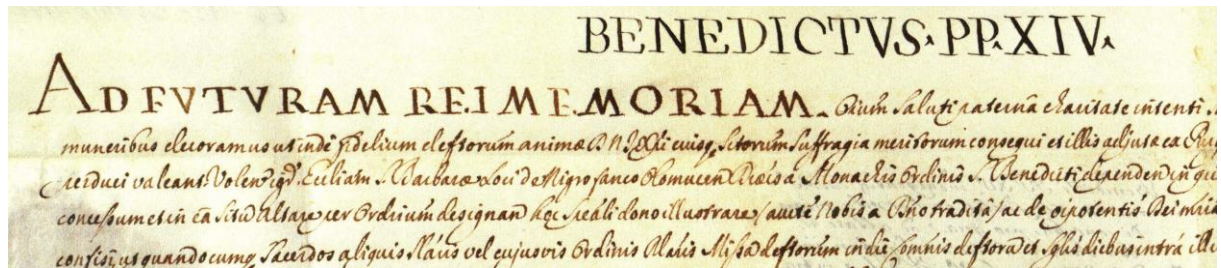 BENEDICTVS·PP·XIV·
AD FVTVRAM REI MEMORIAM. Oium saluti paterna charitate intenti
muneribus decoramus ut inde fidelium deftorum animæ D N J Xti eiusq Sctorum suffragia meritorum consequi et illis adjutæ ex
perduci valeant. Volen igr Eccliam S. Barbaræ Loci de Nigro Olomucen Diœcis a Monachis Ordinis S. Benedicti dependen in
concessum et in ea situm Altare per Ordrium designan hoc speali dono illustrare aucte Nobis a Dno tradita ac de oipotentis Dei
confisi, ut quandocumq Sacerdos aliquis vel cujusvis Ordinis Missã deftorum in die Comnis deftor et diebus intrà